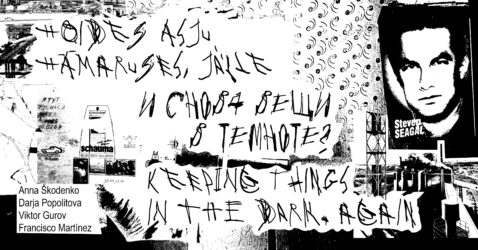 HOIDES ASJU
HÄMARUSES, JÄLLE
И СНОВА ВЕЩИ
В ТЕМНОТЕ?
KEEPING THINGS
IN THE DARK, AGAIN
Steven
SEAGAL
schauma
Anna Škodenko
Darja Popolitova
Viktor Gurov
Francisco Martínez